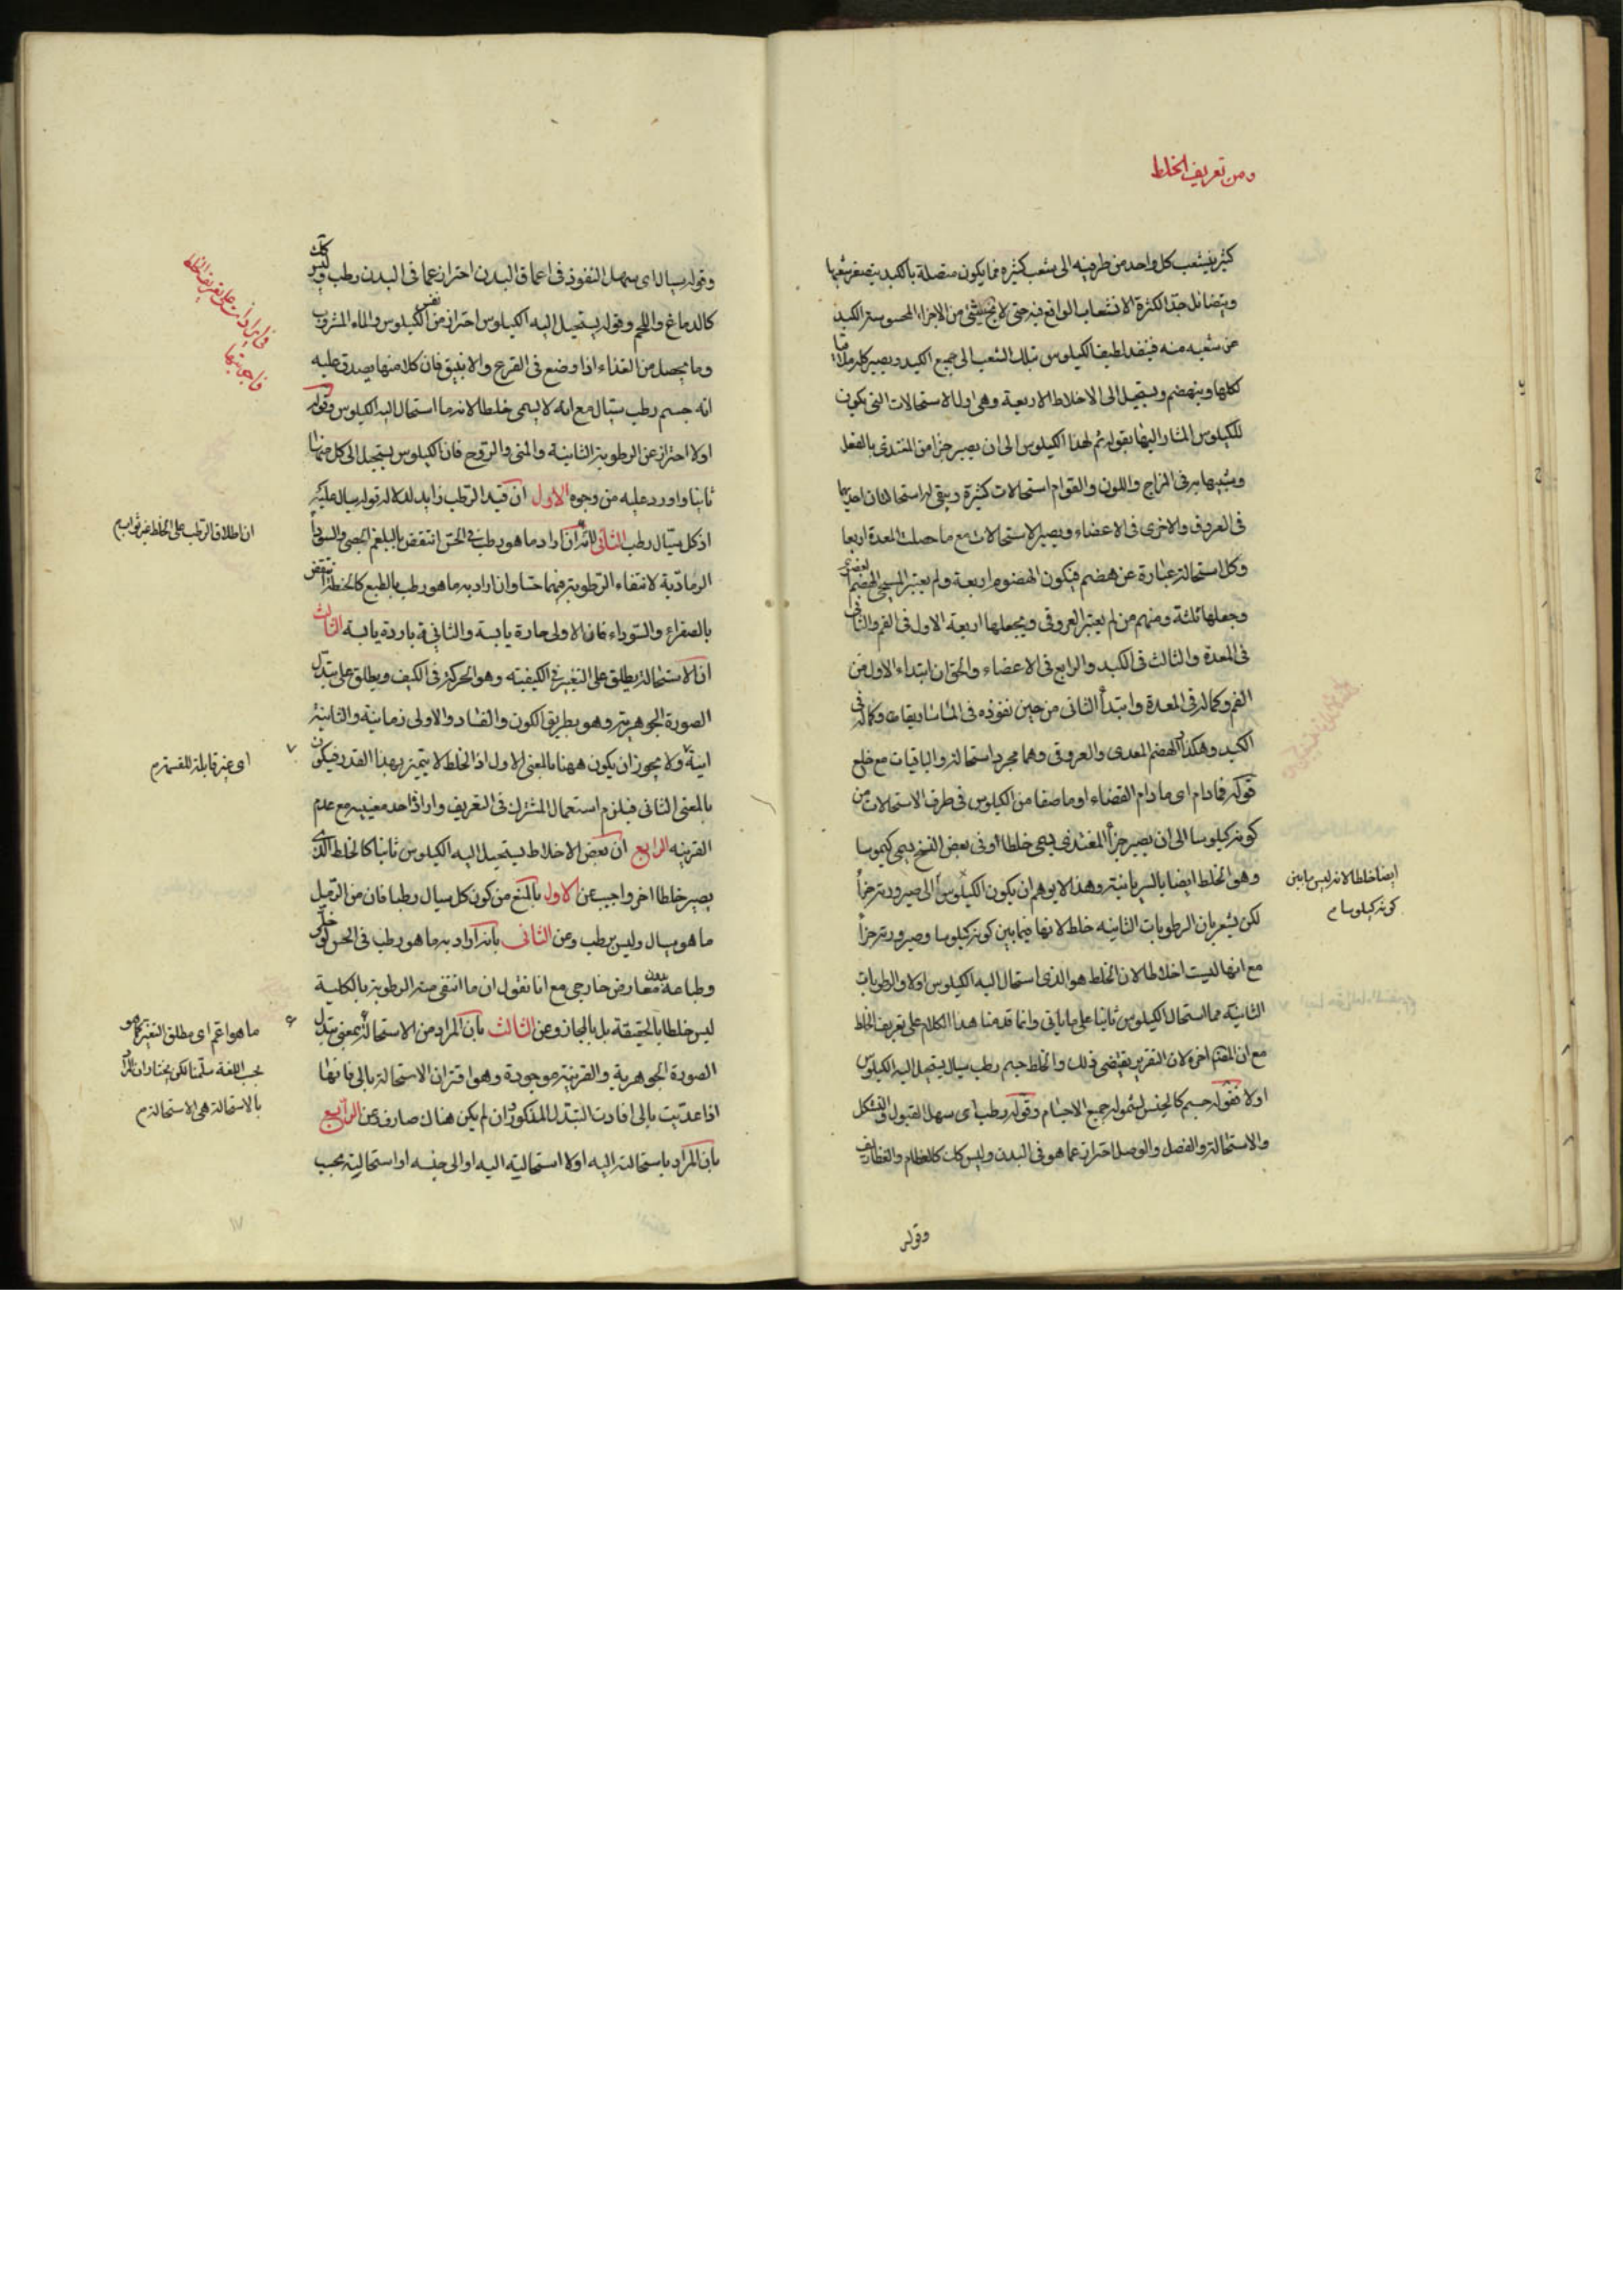 ومن تعريف الخلط
كثير يتشعب كل واحد من طرفيه الى شعب كثيرة فما يكون متصلة بالكبد يتصغر شعبها
ويتضائل جدا لكثرة الانشعاب الواقع فيه حتى لا شئ من الاجزاء المحسوسة الكبد
عن شعبه منه فينفذ لطيف الكيلوس بتلك الشعب الى جميع الكبد ويصير كله ملاقيا
لكلها وينهضم ويستحيل الى الاخلاط الاربعة وهى اولى الاستحالات التى يكون
للكيلوس المشار اليها بقوله ثم لهذا الكيلوس الى ان يصير جزأ من المغتذى بالفعل
وشبيها به فى المزاج واللون والقوام استحالات كثيرة ويبقى له استحالتان احديهما
فى العروق والاخرى فى الاعضاء ويصير الاستحالات مع ما حصلت المعدة اربعا
وكل استحالة عبارة عن هضم فيكون الهضوم اربعة ولم يعتبر المسيحى الهضم
وجعلها ثلثة ومنهم من لم يعتبر العروقى ويجعلها اربعة الاول فى الفم والثانى
فى المعدة والثالث فى الكبد والرابع فى الاعضاء والحق ان ابتداء الاول من
الفم وكماله فى المعدة وابتدأ الثانى من حين نفوذه فى الماساريقا وكماله فى
الكبد وهكذا الهضم المعدى والعروقى وهما مجرد استحالة والباقيات مع خلع
قوله فما دام اى ما دام الغذاء او ما صفا من الكيلوس فى طرف الاستحالات من
كونه كيلوسا الى ان يصير جزأ المغتذى يسمى خلطا وفى بعض النسخ يسمى كيموسا
وهو الخلط ايضا بالسريانية وهذا لا يوهم ان يكون الكيلوس الى صيرورته جزأ
لكن يشعر بان الرطوبات الثانية خلط لانها فيما بين كونه كيلوسا وصيرورته جزأ
مع انها ليست اخلاطا لان الخلط هو الذى استحال اليه الكيلوس اولا والرطوبات
الثانية مما استحال الكيلوس ثانيا على ما ياتى وانما قدمنا هذا الكلام على تعريف الخلط
مع ان المصنف اخره لان التقرير يقتضى ذلك والخلط جسم رطب سيال يستحيل اليه الكيلوس
اولا فقوله جسم كالجنس لشموله جميع الاجسام وقوله رطب اى سهل القبول والتشكل
والاستحالة والفصل والوصل احتراز عما هو فى البدن وليس كك كالعظام والغظاريف
ايضا خلطا لانه ليس ما بين
كونه كيلوسا م
وقوله
وقوله سيال اى سهل النفوذ فى اعماق البدن احتراز عما فى البدن رطب وليس كك
كالدماغ واللحم وقوله يستحيل اليه الكيلوس احتراز من نفس الكيلوس والماء المشروب
وما يحصل من الغذاء اذا وضع فى القرع والانبيق فان كلا منها يصدق عليه
انه جسم رطب سيال مع انه لا يسمى خلطا لانه ما استحال اليه الكيلوس وقوله
اولا احتراز عن الرطوبة الثانية والمنى والروح فان الكيلوس يستحيل الى كل منها
ثانيا واورد عليه من وجوه الاول ان قيد الرطب زايد لدلالة قوله سيال عليه
اذ كل سيال رطب الثانى انه ان اراد ما هو رطب فى الحس انتقض بالبلغم الجصى والسوداء
الرمادية لانتفاء الرطوبة فيهما حسا وان اراد به ما هو رطب بالطبع كالحنطة انتقض
بالصفراء والسوداء فان الاولى حارة يابسة والثانية باردة يابسة الثالث
ان الاستحالة يطلق على التغير فى الكيفية وهو الحركة فى الكيف ويطلق على تبدل
الصورة الجوهرية وهو بطريق الكون والفساد والاولى زمانية والثانية
انية ولا يجوز ان يكون ههنا بالمعنى الاول اذ الخلط لا يتميز بهذا القدر فيكون
بالمعنى الثانى فيلزم استعمال المشترك فى التعريف وارادة احد معنييه مع عدم
القرينه الرابع ان بعض الاخلاط يستحيل اليه الكيلوس ثانيا كالخلط الذى
يصير خلطا اخر واجيب عن الاول بالمنع من كون كل سيال رطبا فان من الرمل
ما هو سيال وليس برطب وعن الثانى بانه اراد به ما هو رطب فى الحس لو خلى
وطباعه بدون معارض خارجى مع انا نقول ان ما انتفى منه الرطوبة بالكلية
ليس خلطا بالحقيقة بل بالمجاز وعن الثالث بان المراد من الاستحالة بمعنى تبدل
الصورة الجوهرية والقرينة موجودة وهو اقتران الاستحالة بالى فانها
اذا عديت بالى افادت التبدل المذكور وان لم يكن هناك صارف وعن الرابع
بان المراد باستحالته اليه اولا استحاليته اليه او الى جنسه او استحاليته بحسب
فى ايرادات على تعريف الخلط
واجوبتها
ان اطلاق الرطب على الخلط غير ثواب م
اى غير قابلة للقسمة م
ما هو اعم اى مطلق التغير كما هو
بحسب اللغة سلمنا لكن يختار ان المراد
بالاستحالة هى الاستحالة م
١٧